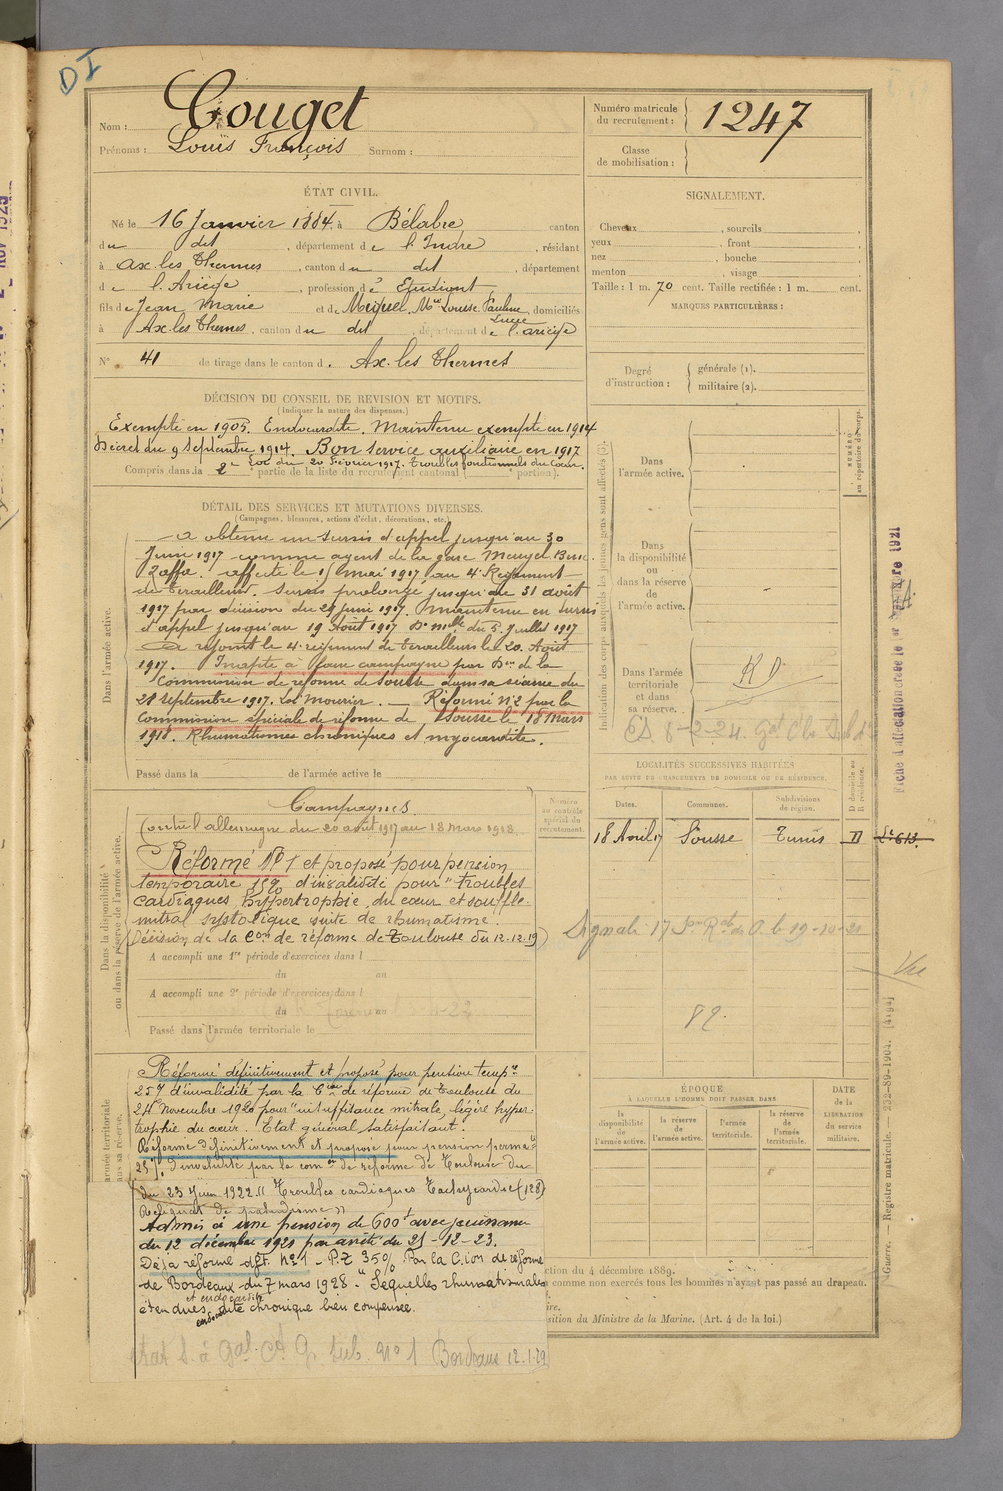 DI
Nom : Couget
Prénoms : Louis François Surnom :
Numéro matricule du recrutement : 1247
Classe de mobilisation :
ÉTAT CIVIL.
Né le 16 Janvier 1884, à Bélabre canton
du dit, département de l'Indre, résidant
à Ax les Thermes, canton du dit, département
de l'Ariège, profession d'Etudiant
fils de Jean Marie et de Miquel, Mie Louise Pauline Lucie, domiciliés
à Ax les Thermes, canton du dit, département de l'Ariège
N° 41 de tirage dans le canton d. Ax. les Thermes
SIGNALEMENT.
Cheveux , sourcils ,
yeux , front ,
nez , bouche ,
menton , visage
Taille : 1 m. 70 cent. Taille rectifiée : 1 m. cent.
MARQUES PARTICULIÈRES :
Degré d'instruction : générale (1).
militaire (2).
DÉCISION DU CONSEIL DE REVISION ET MOTIFS.
(Indiquer la nature des dispenses.)
Exempté en 1905. Endocardite. Maintenu exempté en 1914
Décret du 9 Septembre 1914. Bon service auxiliaire en 1917
Loi du 20 Février 1917. Troubles fonctionnels du Cœur.
Compris dans la 2e partie de la liste du recrutement cantonal ( portion).
DÉTAIL DES SERVICES ET MUTATIONS DIVERSES.
(Campagnes, blessures, actions d'éclat, décorations, etc.)
Dans l'armée active.
A obtenu un sursis d'appel jusqu'au 30
Juin 1917 comme agent de la gare Menzel Bou
Zelfa. affecté le 15 mai 1917 au 4e Régiment
de tirailleurs. Sursis prolongé jusqu'au 31 août
1917 par décision du 29 juin 1917. Maintenu en sursis
d'appel jusqu'au 19 Août 1917 Don mlle du 5 Juillet 1917
A rejoint le 4e régiment de tirailleurs le 20 Août
1917. Inapte à faire campagne par Don de la
Commission de réforme de Sousse dans sa séance du
21 septembre 1917. Loi Mourier. Réformé N°2 par la
Commission spéciale de réforme de Sousse le 18 mars
1918. Rhumatismes chroniques et myocardite.
Passé dans la de l'armée active le
Dans la disponibilité ou dans la réserve de l'armée active.
Campagnes.
Contre l'allemagne du 20 août 1917 au 18 Mars 1918.
Réformé N° 1 et proposé pour pension
temporaire 15% d'invalidité pour "troubles
cardiaques hypertrophie du cœur et souffle
mitral systolique suite de rhumatisme.
(Décision de la Con de réforme de Toulouse du 12-12-19)
A accompli une 1re période d'exercices dans l
du au
A accompli une 2e période d'exercices dans l
du au
Passé dans l'armée territoriale le
armée territoriale
Réformé définitivement et proposé pour pension tempre
25% d'invalidité par la Cion de réforme de Toulouse du
24 Novembre 1920 pour "insuffisance mitrale, légère hyper-
trophie du cœur. Etat général satisfaisant.
Réformé définitivement et proposé pour pension perma-
25% d'invalidité par la com on de réforme de Toulouse du
du 23 Juin 1922 "Troubles cardiaques Tachycardie (128)
Reliquat de paludisme"
Admis à une pension de 600f avec jouissance
du 12 décembre 1921 par arrêté du 21-12-23.
Déjà réformé dft. N°1 - P.Z 35% Par la C.ion de réforme
de Bordeaux du 7 mars 1928 - "Séquelles rhumatismales
étendues et endocardite chronique bien compensée.
Bordeaux 12.1.29
Indication des corps auxquels les jeunes gens sont affectés (3).
Dans l'armée active.
Dans la disponibilité ou dans la réserve de l'armée active.
Dans l'armée territoriale et dans sa réserve.
R D.
NUMÉRO au répertoire du corps.
Numéro au contrôle spécial du recrutement.
LOCALITÉS SUCCESSIVES HABITÉES
PAR SUITE DE CHANGEMENTS DE DOMICILE OU DE RÉSIDENCE.
Dates. Communes. Subdivisions de région. D domicile ou R résidence.
18 Avril 17 Sousse Tunis D
82.
ÉPOQUE
À LAQUELLE L'HOMME DOIT PASSER DANS
la disponibilité de l'armée active. la réserve de l'armée active. l'armée territoriale. la réserve de l'armée territoriale.
DATE de la LIBÉRATION du service militaire.
ction du 4 décembre 1889.
comme non exercés tous les hommes n'ayant pas passé au drapeau.
ire.
sition du Ministre de la Marine. (Art. 4 de la loi.)
Vu
Guerre. — Registre matricule. — 232-89-1904. [4194]